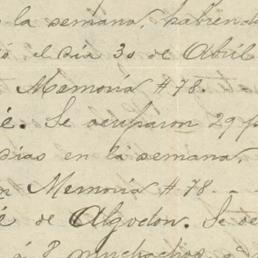 la semana, habiendo
el día 30 de Abril
Memoria #78. -
Se ocuparon 29
días en la semana.
Memoria #78 - -
de Algodon. Se
á 8 muchachos